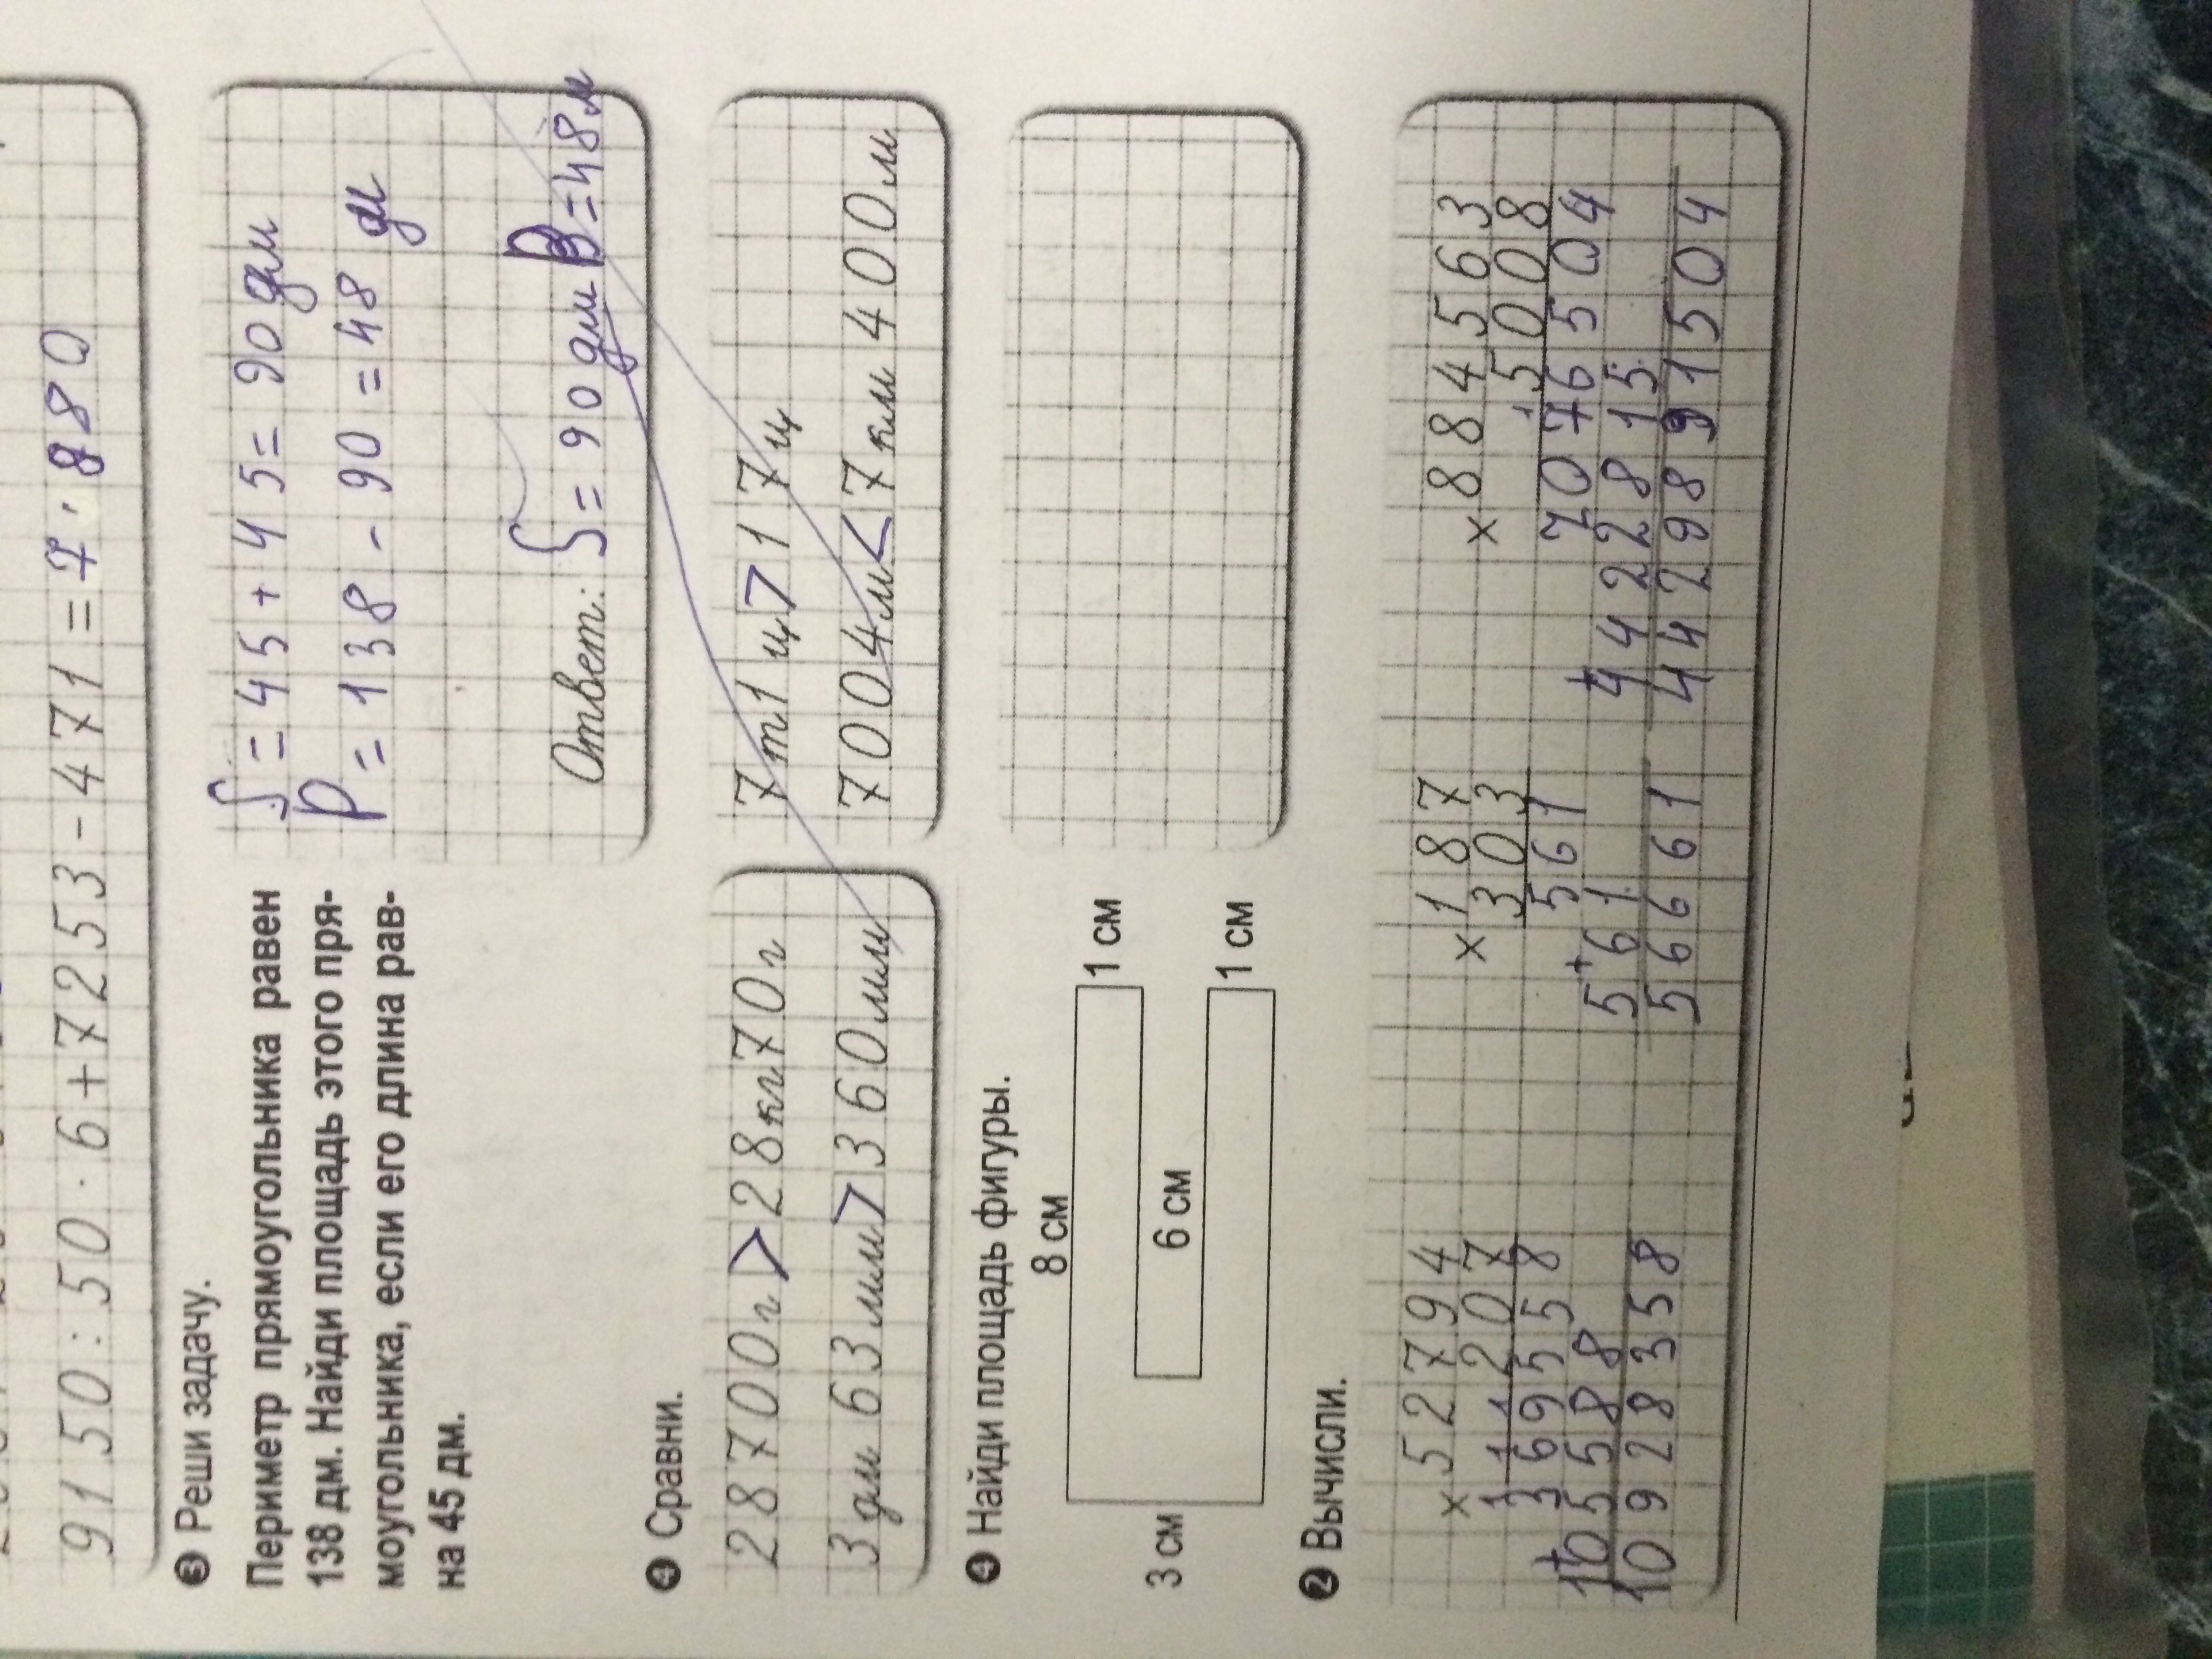 9150:50·6+7253-471=7·880
❸ Реши задачу.
Периметр прямоугольника равен
138 дм. Найди площадь этого пря-
моугольника, если его длина рав-
на 45 дм.
S=45+45=90 дм
P=138-90=48 дм
Ответ: S=90 дм P=48 м
❹ Сравни.
28700г>28кг70г
3дм63мм>360мм
7т1ц>17ц
7004м<7км400м
❹ Найди площадь фигуры.
8 см
1 см
6 см
3 см
1 см
❷ Вычисли.
×52794
207
369558
+105588
10928358
×187
303
561
+561
56661
×884563
5008
7076504
+4422815
4429891504